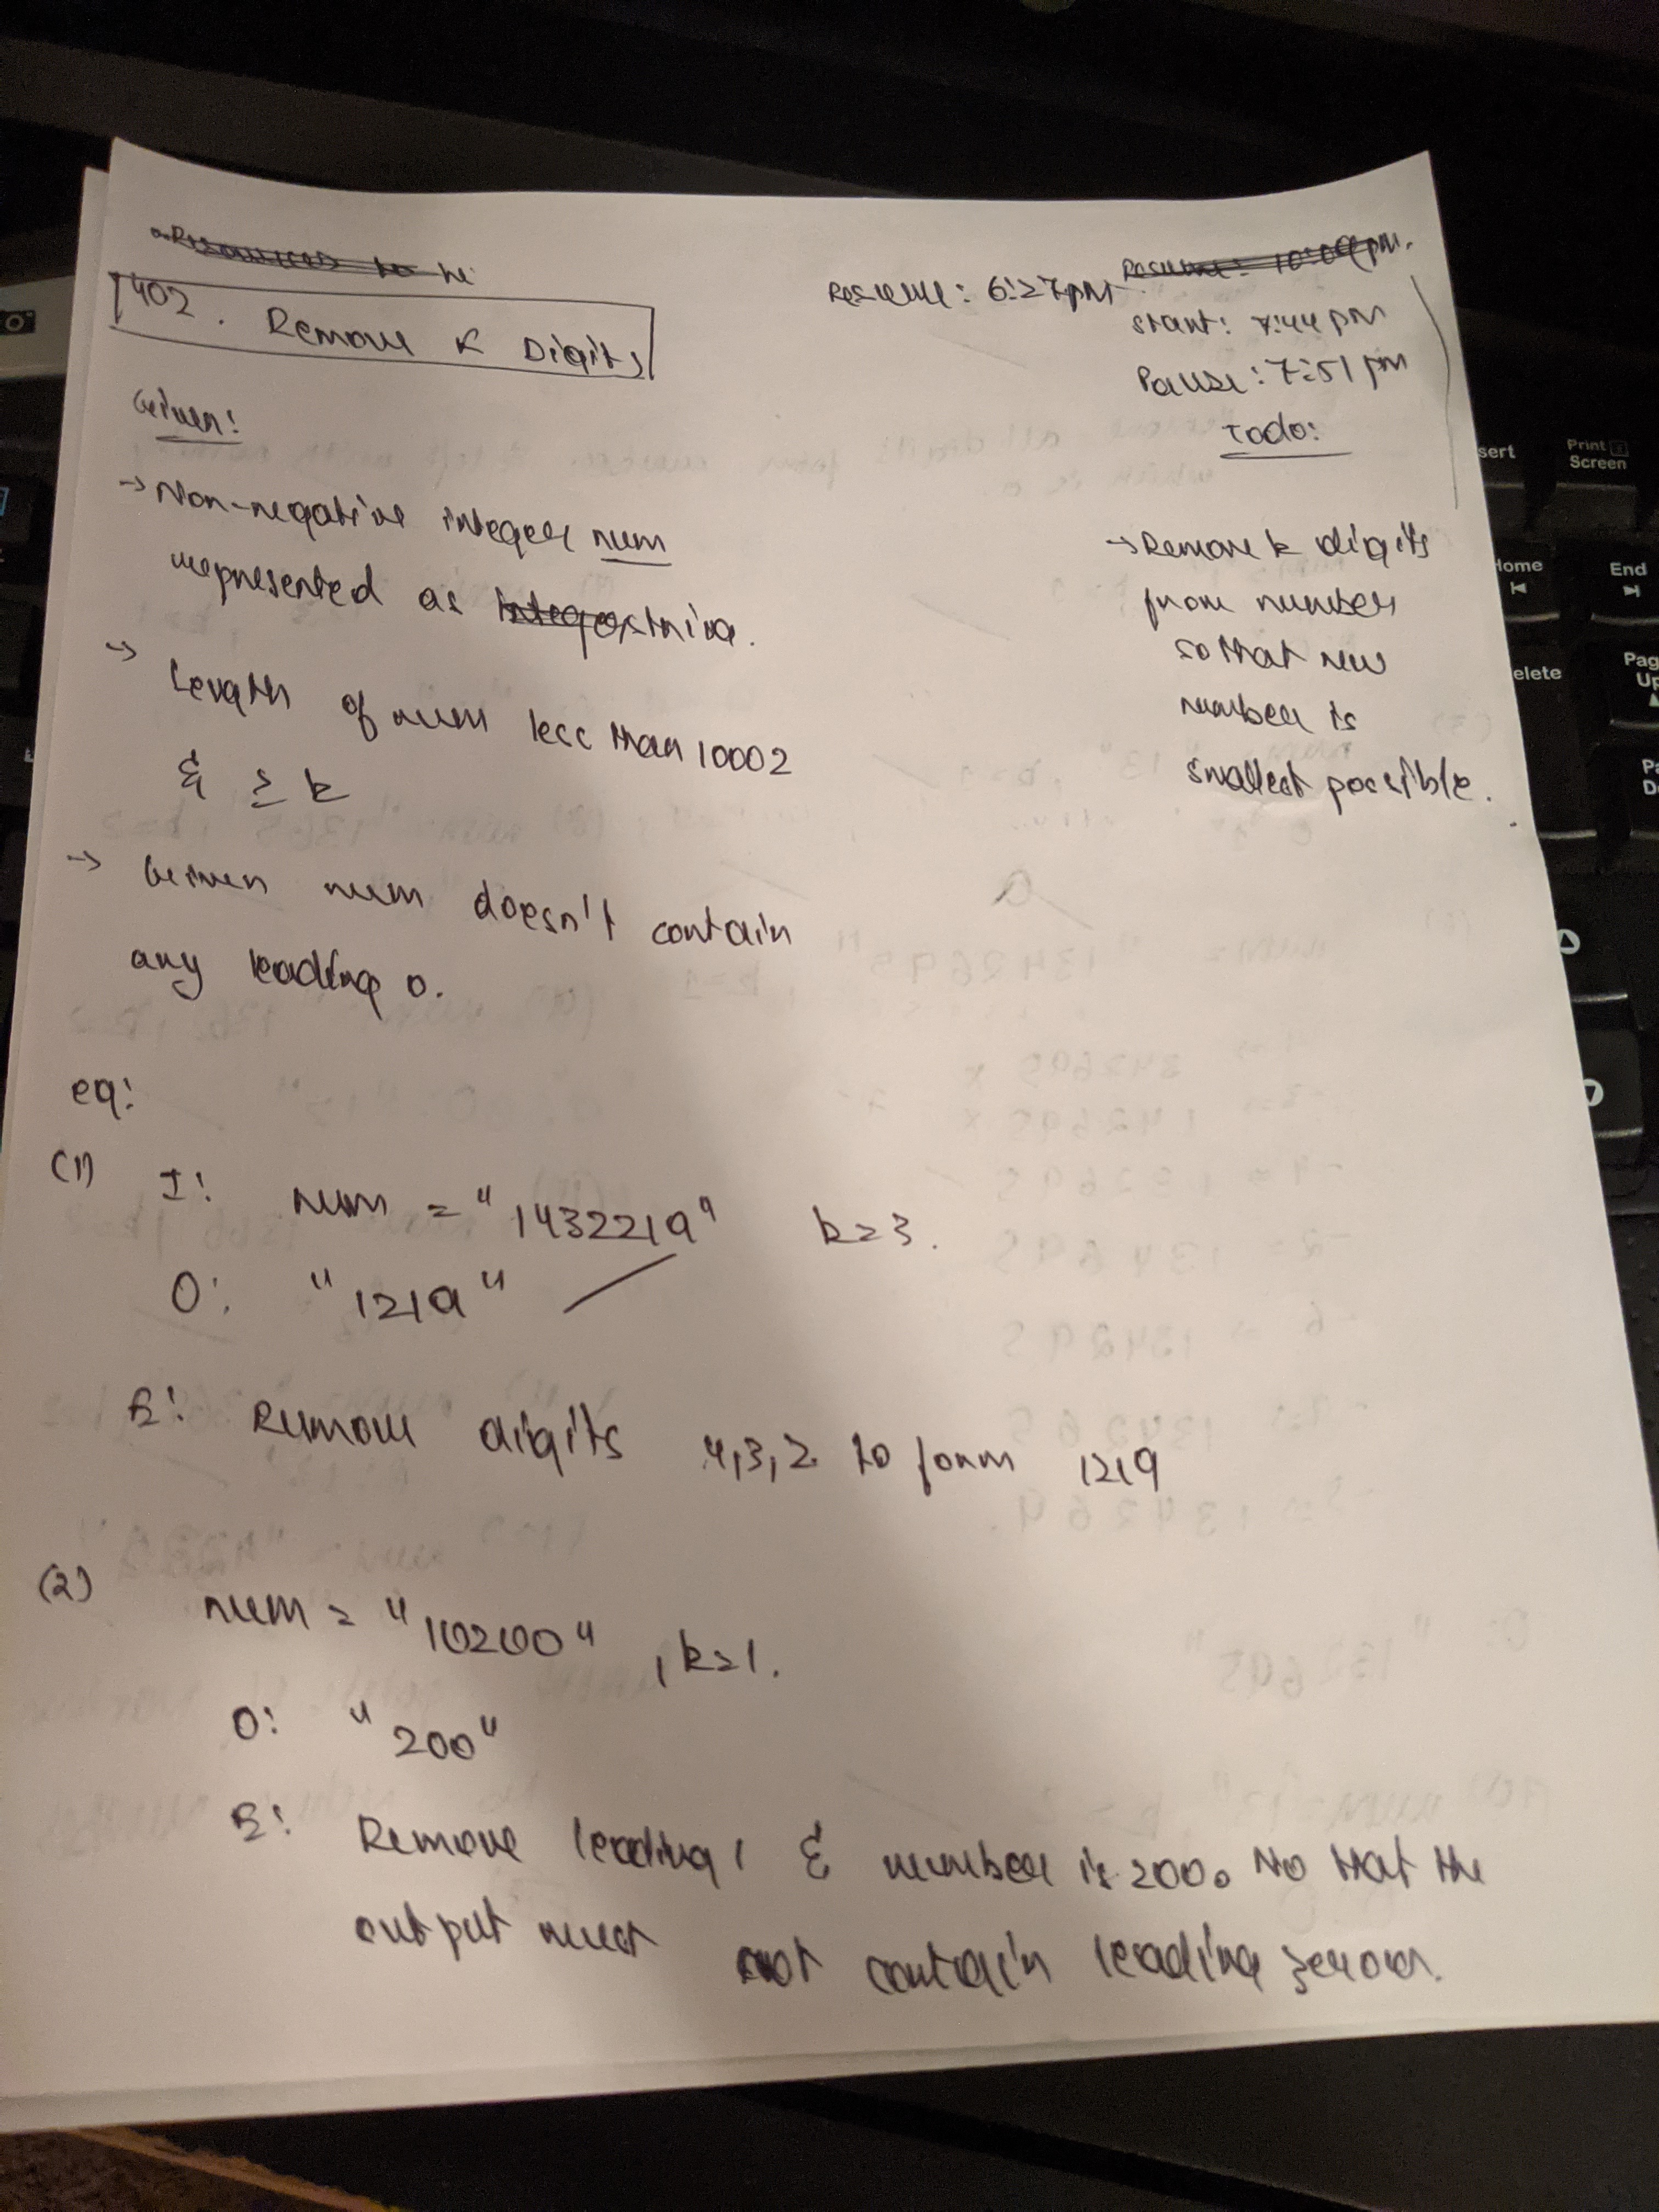 Resume: 10:09pm.
Resume: 6:27pm
402. Remove K Digits
start: 7:44 pm
Pause: 7:51 pm
Given:
Todo:
-> Non-negative integer num
represented as string.
-> Length of num less than 10002
& ≥ k
-> Given num doesn't contain
any leading 0.
-> Remove k digits
from number
so that new
number is
smallest possible.
eg:
(1) I: num = "1432219" k=3.
O: "1219"
E: Remove digits 4,3,2 to form 1219
(2) num = "10200", k=1.
O: "200"
E: Remove leading 1 & number is 200. No that the
output must not contain leading zeroes.
sert
Print
Screen
Home
End
elete
Pag
Up